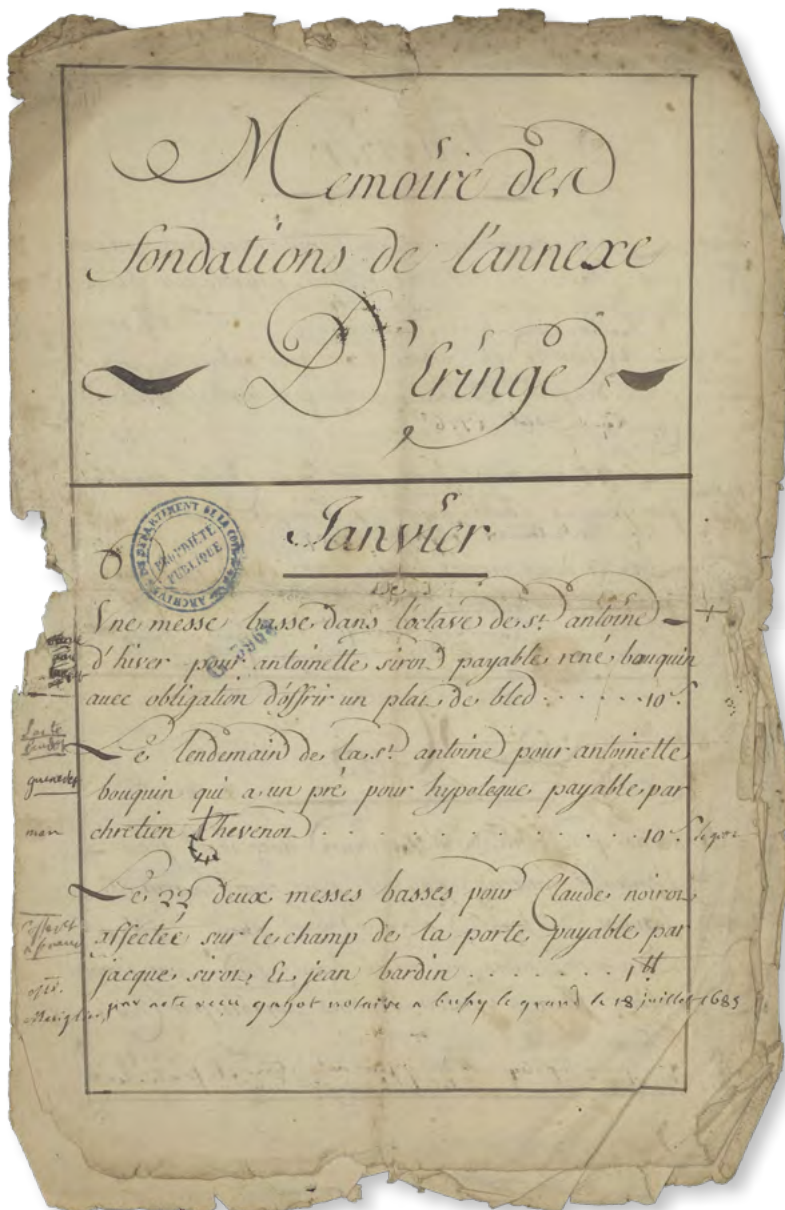 Memoire des
fondations de l'annexe
D'Eringe
Janvier
ARCHIVES DU DÉPARTEMENT DE LA CÔTE D'OR
PROPRIÉTÉ
PUBLIQUE
Une messe basse dans loctave de st. antoine
d'hiver pour antoinette sirot payable rené bouquin
avec obligation d'offrir un plat de bled . . . . . 10 s.
Le lendemain de la st. antoine pour antoinette
bouquin qui a un pré pour hypoteque payable par
chretien thevenot . . . . . . . . . . . . . 10 s.
Le 22 deux messes basses pour Claude noirot
affectée sur le champ de la porte payable par
jacque sirot Et jean bardin . . . . . . . 1 ₶
par acte recu gagot notaire a bussy le grand le 18 juillet 1685